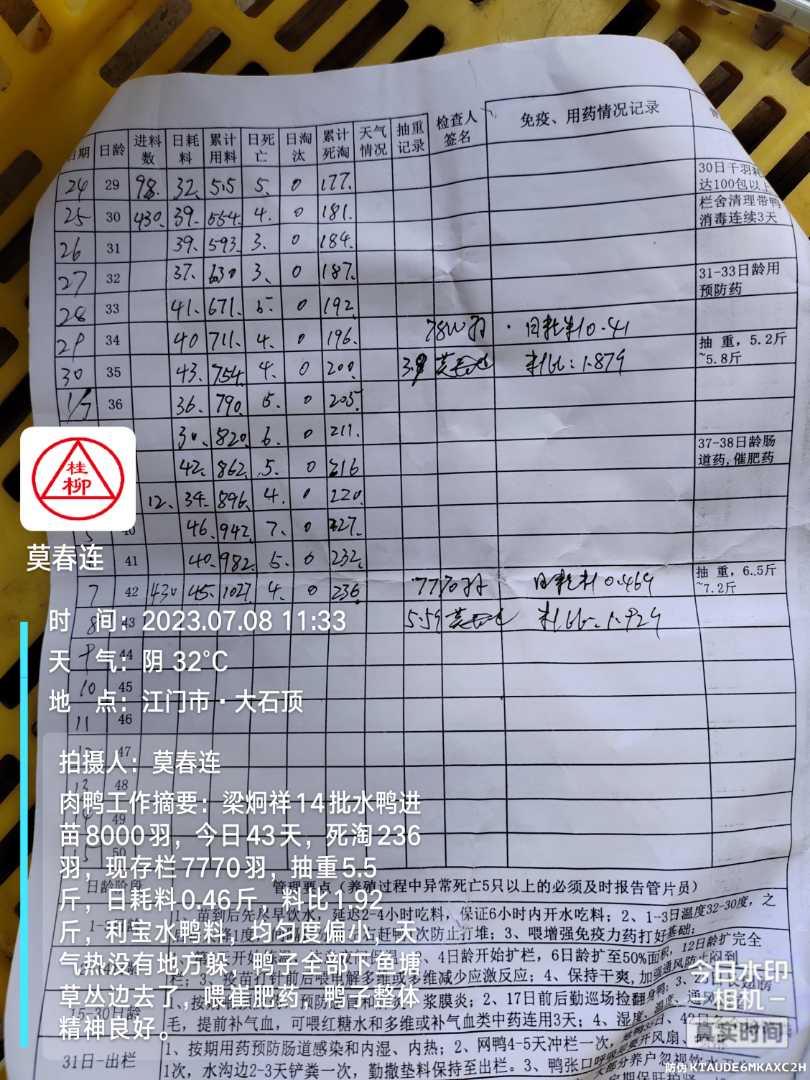 日期 日龄 进料数 日耗料 累计用料 日死亡 日淘汰 累计死淘 天气情况 抽重记录 检查人签名 免疫、用药情况记录
24 29 98. 32. 515 5. 0 177.
30日千羽耗
达100包以上
25 30 430. 39. 554. 4. 0 181.
栏舍清理带鸭
消毒连续3天
26 31 39. 593. 3. 0 184.
27 32 37. 630 3. 0 187.
31-33日龄用
预防药
28 33 41. 671. 5. 0 192.
29 34 40 711. 4. 0 196. 日耗料0.41
抽重，5.2斤
~5.8斤
30 35 43. 754. 4. 0 200. 料比:1.879
1/7 36 36. 790. 5. 0 205.
30. 820. 6. 0 211.
37-38日龄肠
道药,催肥药
42. 862. 5. 0 216
12. 34. 896. 4. 0 220.
40 46. 942. 7. 0 227.
41 40. 982. 5. 0 232.
7 42 430 45. 1027. 4. 0 236. 7770羽 日耗料0.464
抽重，6.5斤
~7.2斤
8 43 5.59 料比:1.924
9 44
10 45
11 46
47
48
49
50
桂柳
莫春连
时 间：2023.07.08 11:33
天 气：阴 32℃
地 点：江门市·大石顶
拍摄人：莫春连
肉鸭工作摘要：梁炯祥14批水鸭进
苗8000羽，今日43天，死淘236
羽，现存栏7770羽，抽重5.5
斤，日耗料0.46斤，料比1.92
斤，利宝水鸭料，均匀度偏小，天
气热没有地方躲，鸭子全部下鱼塘
草丛边去了，喂崔肥药，鸭子整体
精神良好。
日龄阶段 管理要点（养殖过程中异常死亡5只以上的必须及时报告管片员）
1、苗到后先尽早饮水，延迟2-4小时吃料，保证6小时内开水吃料；2、1-3日温度32-30度，之
次防止打堆；3、喂增强免疫力药打好基础；
4日龄开始扩栏，6日龄扩至50%面积，12日龄扩完全
多维或多维减少应激反应；4、保持干爽，加强通风防水闷到
15-30日龄
浆膜炎；2、17日前后勤巡场捡翻身鸭；3、
毛，提前补气血，可喂红糖水和多维或补气血类中药连用3天；4、
31日-出栏
1、按期用药预防肠道感染和内湿、内热；2、网鸭4-5天冲栏一次，
次，水沟边2-3天铲粪一次，勤撒垫料保持至出栏。3、鸭张口呼吸
今日水印
相机
真实时间
防伪 KTAUDE6MKAXC2H